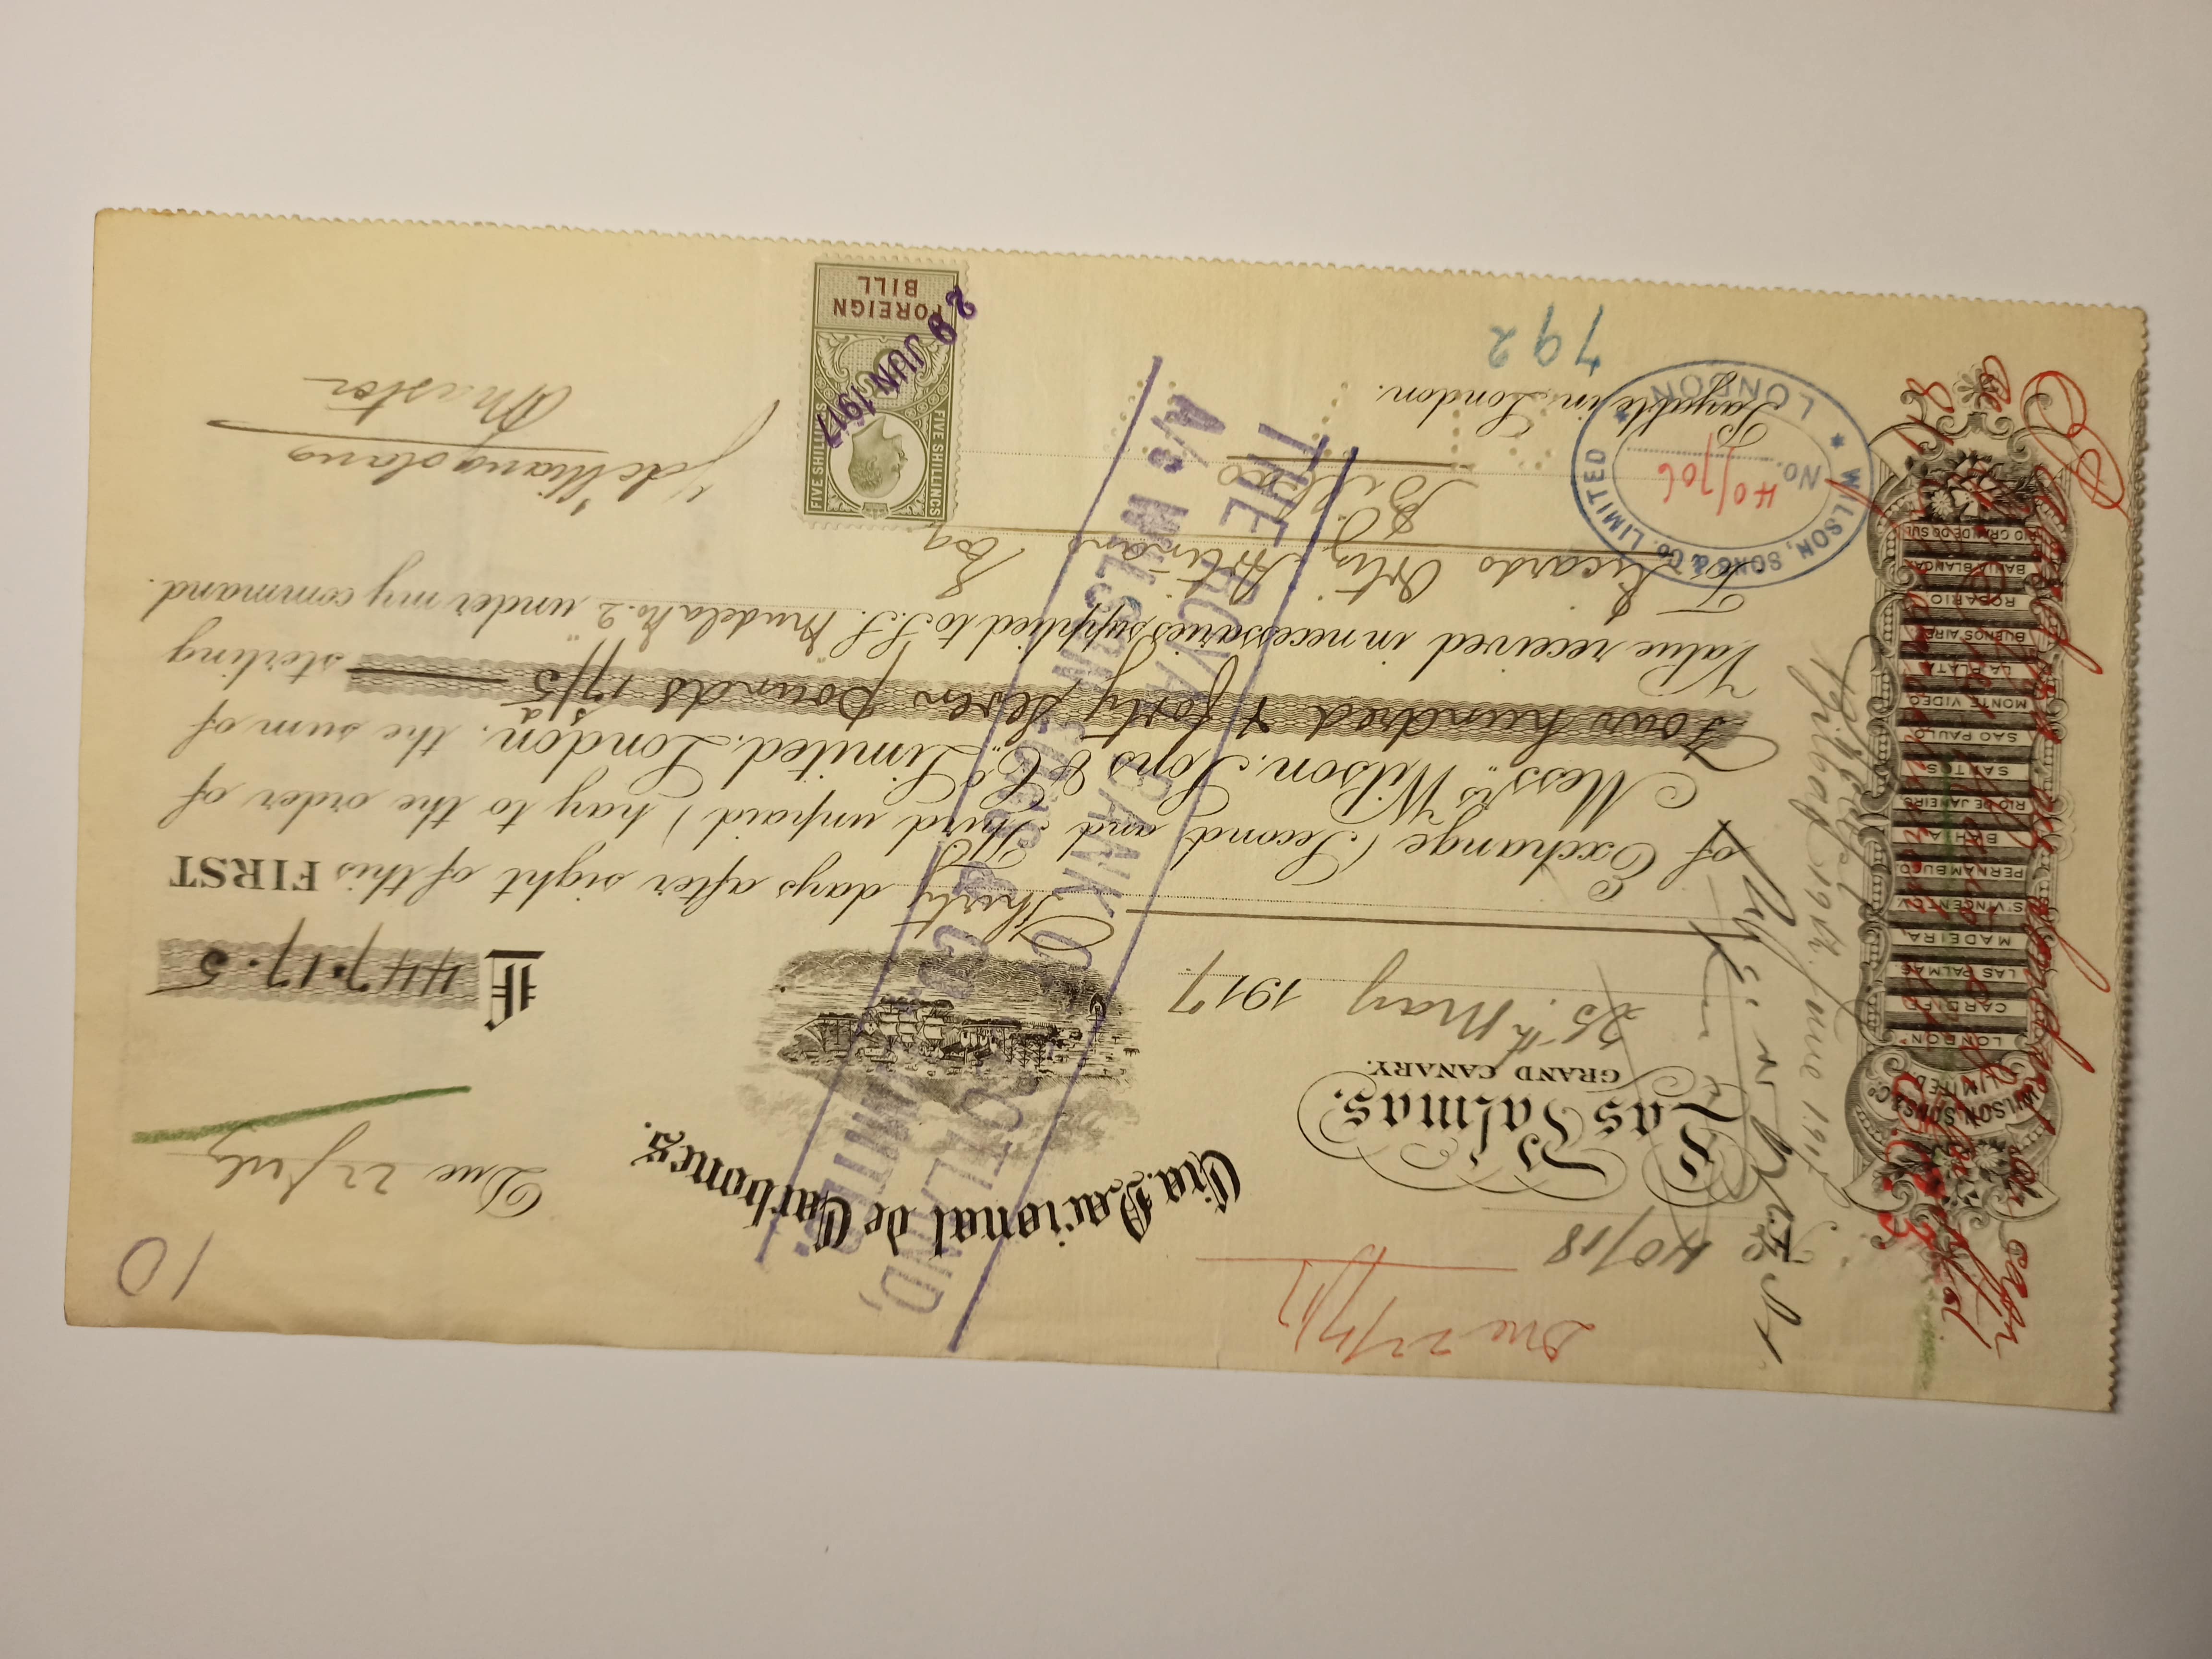 Due 22/7/17
10
40/18
Cia. Nacional de Carbones.
Due 22 July
Las Palmas.
GRAND CANARY.
25th May 1917
£ 447.17.5
Thirty days after sight of this FIRST
of Exchange (Second and Third unpaid) pay to the order of
Messrs Wilson, Sons & Co. Limited, London, the sum of
Four hundred & forty seven pounds 17s/5d sterling
Value received in necessaries supplied to S.S. "Mudela No. 2" under my command.
To Ricardo Ortiz Artinano Esq.
Bilbao
Payable in London.
792
Master
WILSON, SONS & Co. LIMITED
LONDON
No. 40/706
FOREIGN
BILL
FIVE SHILLINGS
FIVE SHILLINGS
29 JUN 1917
THE ROYAL BANK OF SCOTLAND,
A/c WILSON SONS & CO. LIMITED
WILSON, SONS & Co.
LIMITED
LONDON
CARDIFF
LAS PALMAS
MADEIRA
ST. VINCENT C.V.
PERNAMBUCO
BAHIA
RIO DE JANEIRO
SANTOS
SAO PAULO
MONTE VIDEO
LA PLATA
BUENOS AIRES
ROSARIO
BAHIA BLANCA
RIO GRANDE DO SUL
Accepted
Bilbao 19th June 1917